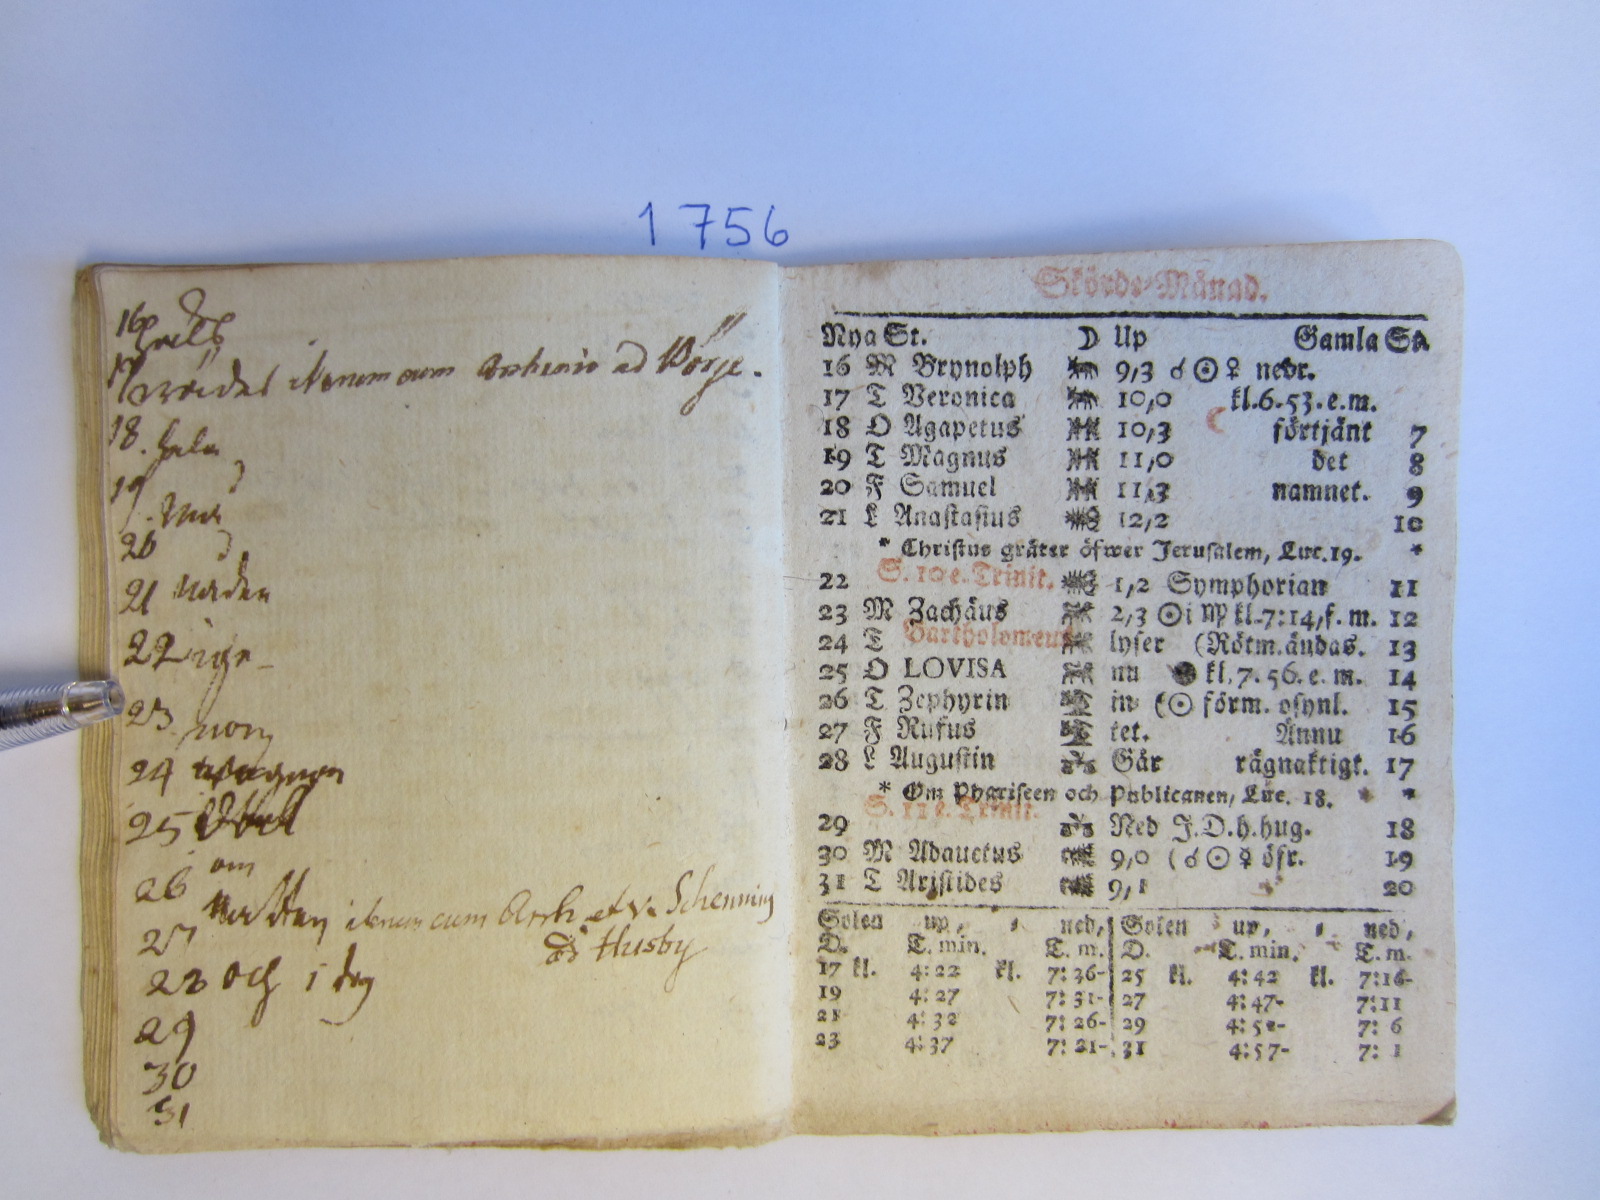 1756
16
17 iterum cum ad Börje.
18. hela
19
20
21
22
23
24
25
26 om
27 iterum cum et Schenning
Husby
28 och i dag
29
30
31
Skörde-Månad.
Nya St. ☽ Up Gamla St.
16 M Brynolph 9,3 ☌ ☉ ♀ nedr.
17 T Veronica 10,0 kl.6.53.e.m.
18 O Agapetus 10,3 ☾ förtjänt 7
19 T Magnus 11,0 det 8
20 F Samuel 11,3 namnet. 9
21 L Anastasius 12,2 10
* Christus gråter öfwer Jerusalem, Luc.19. *
22 S. 10 e. Trinit. 1,2 Symphorian 11
23 M Zachäus 2,3 ☉ i ♍ kl.7:14,f.m. 12
24 T Bartholomeus lyser (Rötm.ändas. 13
25 O LOVISA nu ● kl.7.56.e.m. 14
26 T Zephyrin in- (☉ förm. osynl. 15
27 F Rufus tet. Ännu 16
28 L Augustin Går rägnaktigt. 17
* Om Phariseen och Publicanen, Luc. 18. *
29 S. 11 e. Trinit. Ned J.D.h.hug. 18
30 M Adauctus 9,0 (☌ ☉ ☿ öfr. 19
31 T Aristides 9,1 20
Solen up, ned, Solen up, ned,
D. T. min. T. m. D. T. min. T. m.
17 kl. 4:22 kl. 7:36- 25 kl. 4:42 kl. 7:16-
19 4:27 7:31- 27 4:47- 7:11
21 4:32 7:26- 29 4:52- 7: 6
23 4:37 7:21- 31 4:57- 7: 1